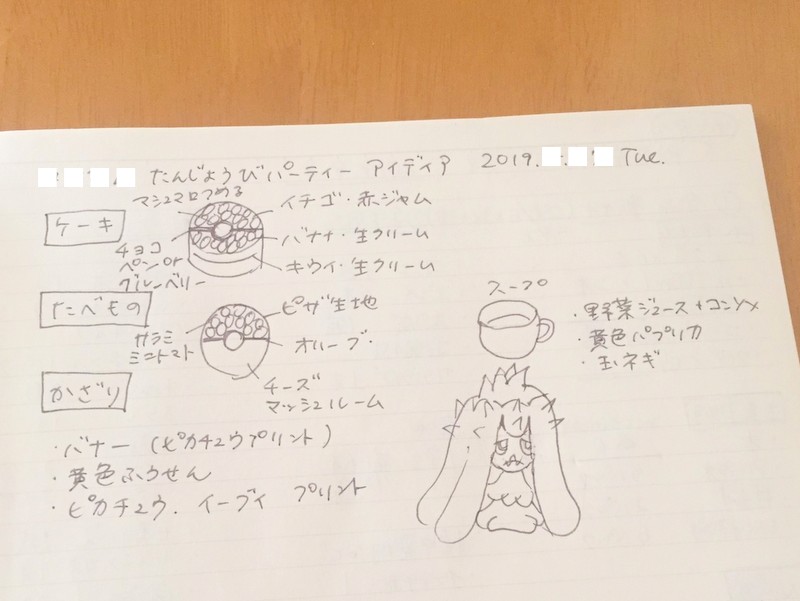 たんじょうびパーティー アイディア 2019. Tue.
ケーキ
マシュマロつめる
イチゴ・赤ジャム
バナナ・生クリーム
キウイ・生クリーム
チョコ
ペンor
ブルーベリー
たべもの
ピザ生地
サラミ
ミニトマト
オリーブ
チーズ
マッシュルーム
スープ
・野菜ジュース+コンソメ
・黄色パプリカ
・玉ネギ
かざり
・バナー(ピカチュウプリント)
・黄色ふうせん
・ピカチュウ. イーブイ プリント